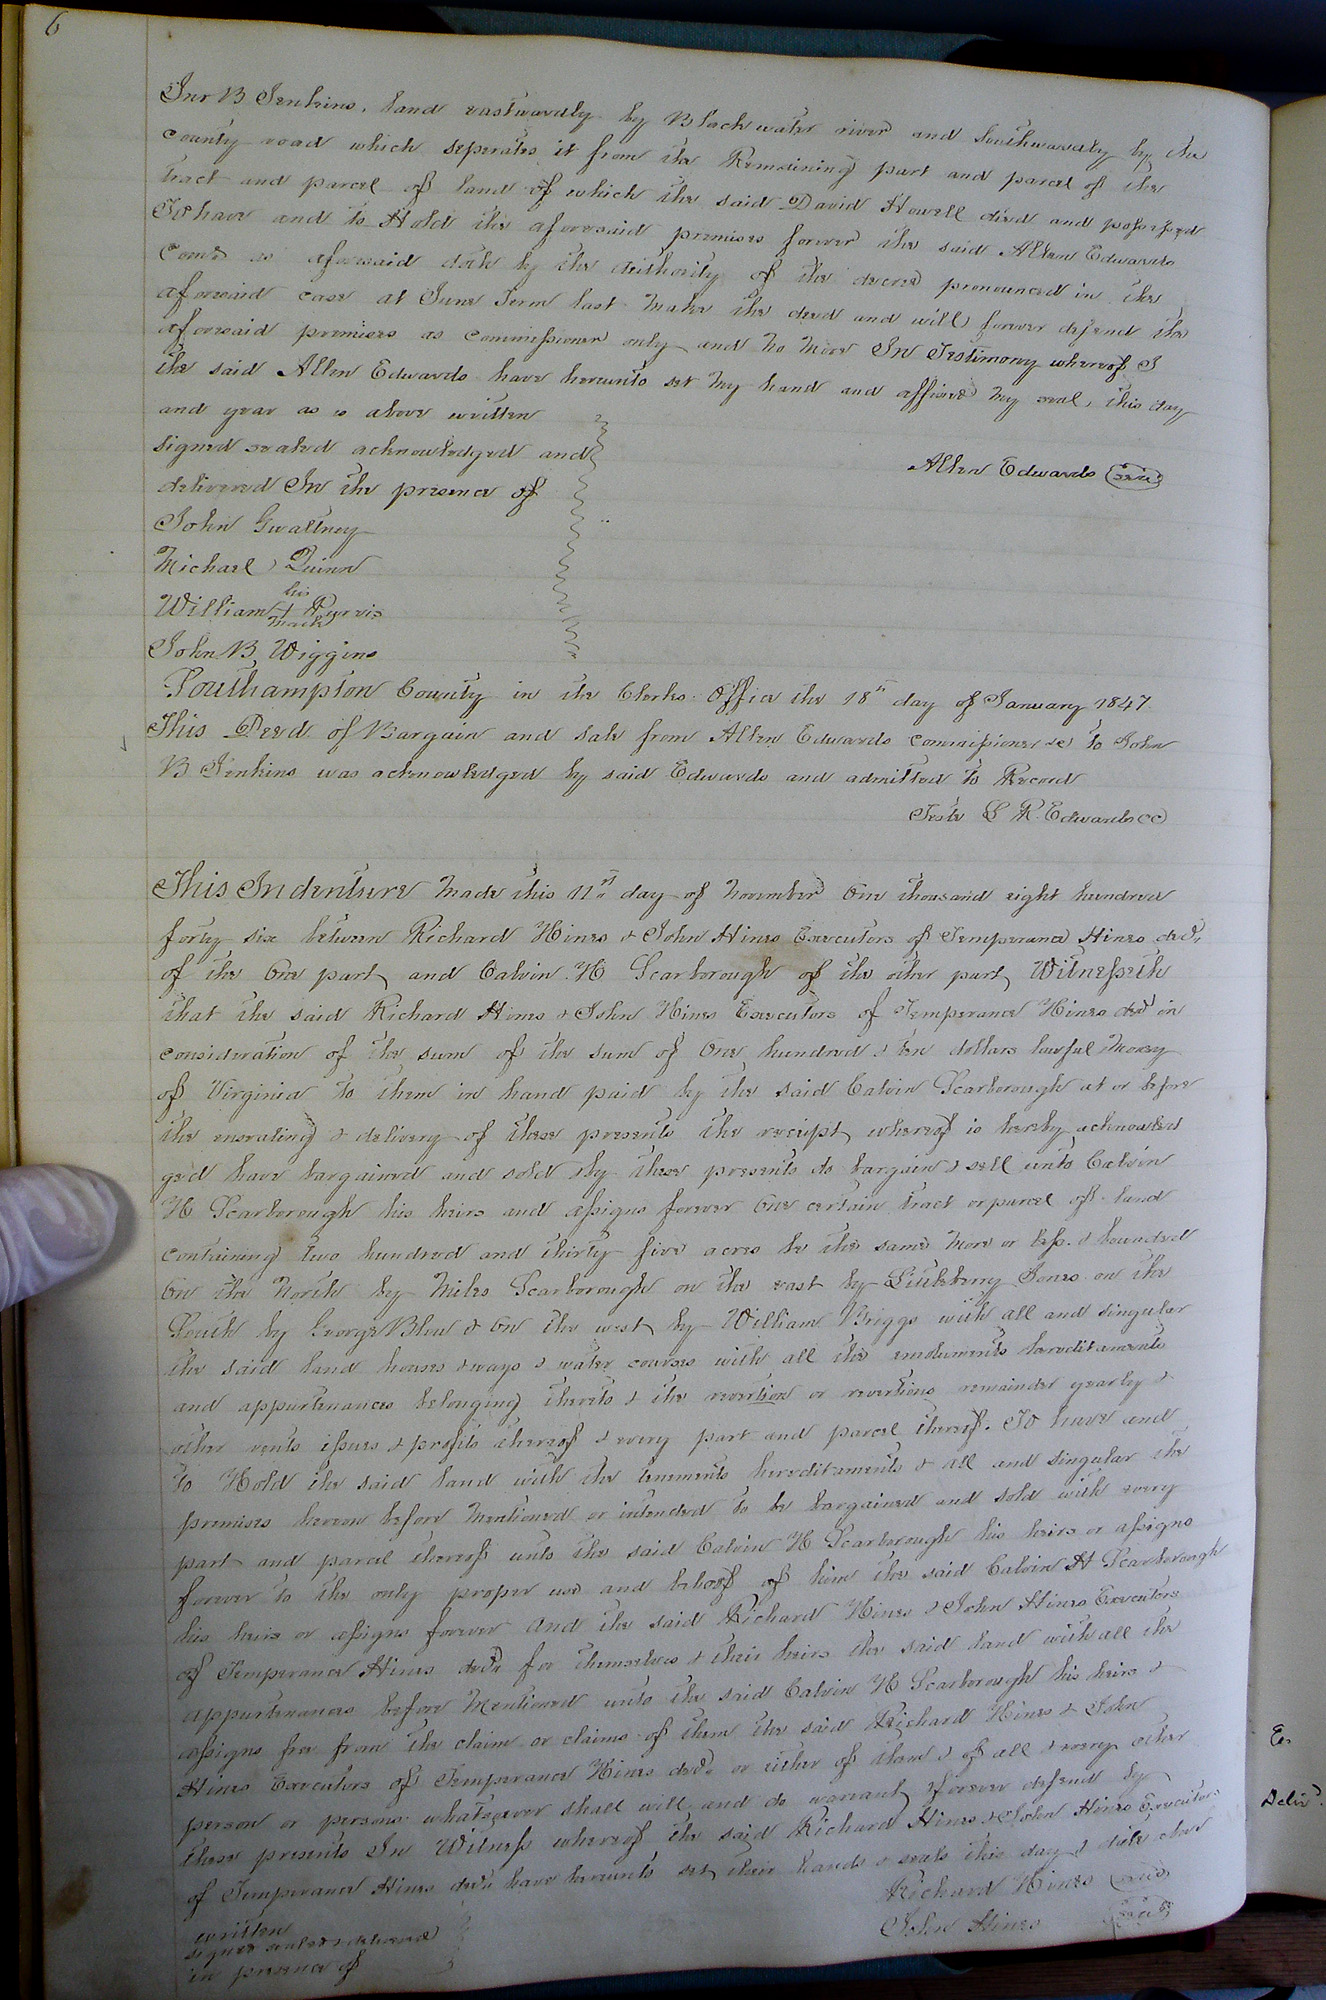 6
Jno B Jenkins, land eastwardly by Blackwater river and Southwardly by the
County road which seperates it from the Remaining part and parcel of the
tract and parcel of land of which the said David Howell died and possessed
To have and to Hold the aforesaid premises forever the said Allen Edwards
Comr as aforesaid doth by the authority of the decree pronounced in the
aforesaid case at June Term last make the deed and will forever defend the
aforesaid premises as commissioner only and no more In Testimony whereof I
the said Allen Edwards have hereunto set my hand and affixed my seal, this day
and year as is above written
signed sealed acknowledged and
Allen Edwards (seal)
delivered In the presence of
John Gwaltney
Michael Quinn
his
William + Purvis
mark
John B Wiggins
Southampton County in the Clerks Office the 18th day of January 1847
This Deed of Bargain and sale from Allen Edwards commissioner &c to John
B Jenkins was acknowledged by said Edwards and admitted to Record
Teste L R Edwards CC
This Indenture made this 11st day of November One thousand eight hundred
forty six between Richard Hines & John Hines Executors of Temperance Hines decd,
of the One part and Calvin H Scarborough of the other part Witnesseth
that the said Richard Hines & John Hines Executors of Temperance Hines decd in
consideration of the sum of the sum of One hundred & ten dollars lawful money
of Virginia to them in hand paid by the said Calvin Scarborough at or before
the ensealing & delivery of these presents the receipt whereof is hereby acknowled
ged have bargained and sold & by these presents do bargain & sell unto Calvin
H Scarborough his heirs and assigns forever One certain tract or parcel of land
containing two hundred and thirty five acres be the same more or less & bounded
On the North by Miles Scarborough on the east by Littleberry Jones on the
South by George Blow & On the west by William Briggs with all and singular
the said land houses & ways & water courses with all the emoluments hereditaments
and appurtenances belonging thereto & the revertion or revertions remainder yearly &
other rents issues & profits thereof & every part and parcel thereof. To have and
to Hold the said land with the tenements hereditaments & all and singular the
premises hereon before mentioned or intended to be bargained and sold with every
part and parcel thereof unto the said Calvin H Scarborough his heirs or assigns
forever to the only proper use and behoof of him the said Calvin H Scarborough
his heirs or assigns forever And the said Richard Hines & John Hines Executors
of Temperance Hines decd for themselves & their heirs the said land with all the
appurtenances before mentioned unto the said Calvin H Scarborough his heirs &
assigns free from the claim or claims of them the said Richard Hines & John
Hines Executors of Temperance Hines decd or either of them & of all & every other
person or persons whatsoever shall will and do warrant & forever defend by
these presents In Witness whereof the said Richard Hines & John Hines Executors
of Temperance Hines decd have hereunto set their hands & seals this day & date above
written
Richard Hines (seal)
signed sealed & delivered
John Hines (seal)
in presence of
Ex
Delivd.